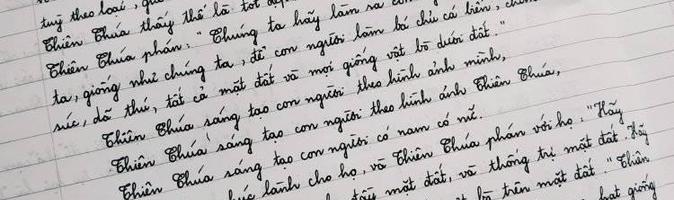 tuỳ theo loại,
Thiên Chúa thấy thế là tốt
Thiên Chúa phán: "Chúng ta hãy làm ra con
ta, giống như chúng ta, để con người làm bá chủ cá biển,
súc, dã thú, tất cả mặt đất và mọi giống vật bò dưới đất."
Thiên Chúa sáng tạo con người theo hình ảnh mình,
Thiên Chúa sáng tạo con người theo hình ảnh Thiên Chúa,
Thiên Chúa sáng tạo con người có nam có nữ.
lành cho họ, và Thiên Chúa phán với họ: "Hãy
đầy mặt đất, và thống trị mặt đất. Hãy
bò trên mặt đất." Thiên
hạt giống